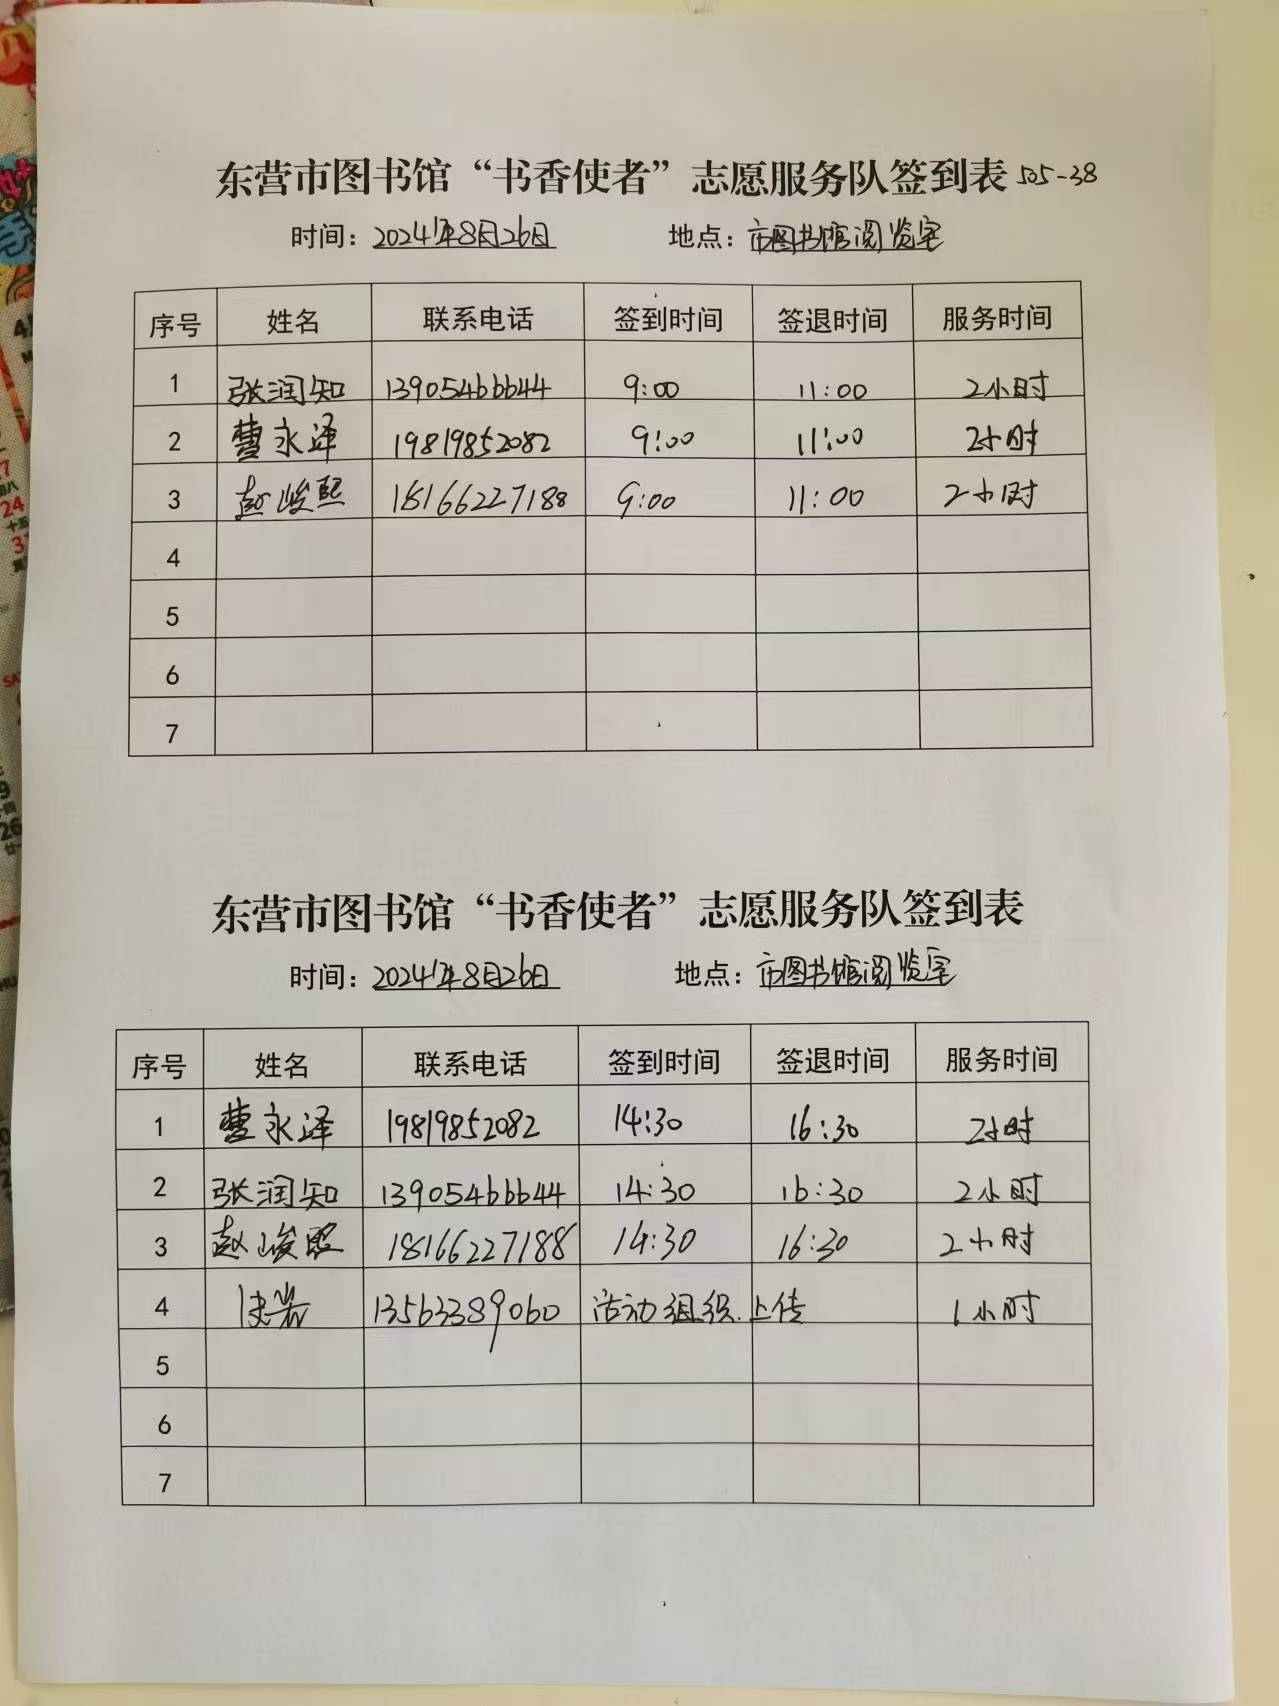 东营市图书馆“书香使者”志愿服务队签到表 505-38
时间：2024年8月26日 地点：市图书馆阅览室
序号 姓名 联系电话 签到时间 签退时间 服务时间
1 张润知 13905466644 9:00 11:00 2小时
2 曹永泽 19819852082 9:00 11:00 2小时
3 赵峻熙 18166227188 9:00 11:00 2小时
4
5
6
7
东营市图书馆“书香使者”志愿服务队签到表
时间：2024年8月26日 地点：市图书馆阅览室
序号 姓名 联系电话 签到时间 签退时间 服务时间
1 曹永泽 19819852082 14:30 16:30 2小时
2 张润知 13905466644 14:30 16:30 2小时
3 赵峻熙 18166227188 14:30 16:30 2小时
4 13563389060 活动组织.上传 1小时
5
6
7